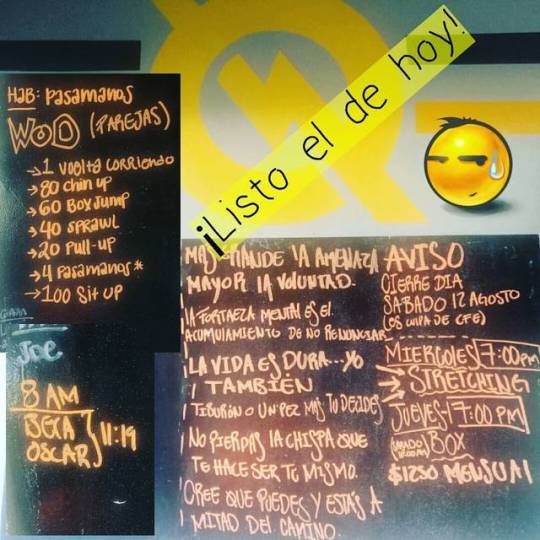 ¡Listo el de hoy!
HAB: Pasamanos
WOD (PAREJAS)
→ 1 vuelta corriendo
→ 80 chin up
→ 60 Box Jump
→ 40 sprawl
→ 20 Pull-up
→ 4 Pasamanos*
→ 100 Sit up
8 AM
OSCAR } 11:19
MAS GRANDE LA AMENAZA
MAYOR LA VOLUNTAD.
LA FORTALEZA MENTAL ES EL
ACUMULAMIENTO DE NO RENUNCIAR
LA VIDA ES DURA...YO
TAMBIÉN
TIBURÓN O UN PEZ MÁS TU DECIDES
NO PIERDAS LA CHISPA QUE
TE HACE SER TU MISMO.
CREE QUE PUEDES Y ESTÁS A
MITAD DEL CAMINO.
AVISO
CIERRE DIA
SABADO 12 AGOSTO
(OS CULPA DE CFE)
MIERCOLES 7:00pm
→ STRETCHING
JUEVES-7:00 PM
BOX
$1250 MENSUAL